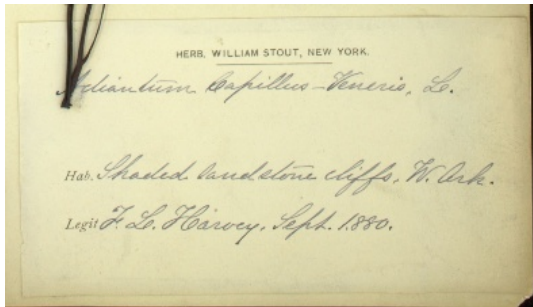 HERB. WILLIAM STOUT, NEW YORK.
Adiantum Capillus-Veneris, L.
Hab. Shaded sandstone cliffs, W. Ark.
Legit F. L. Harvey. Sept. 1880.